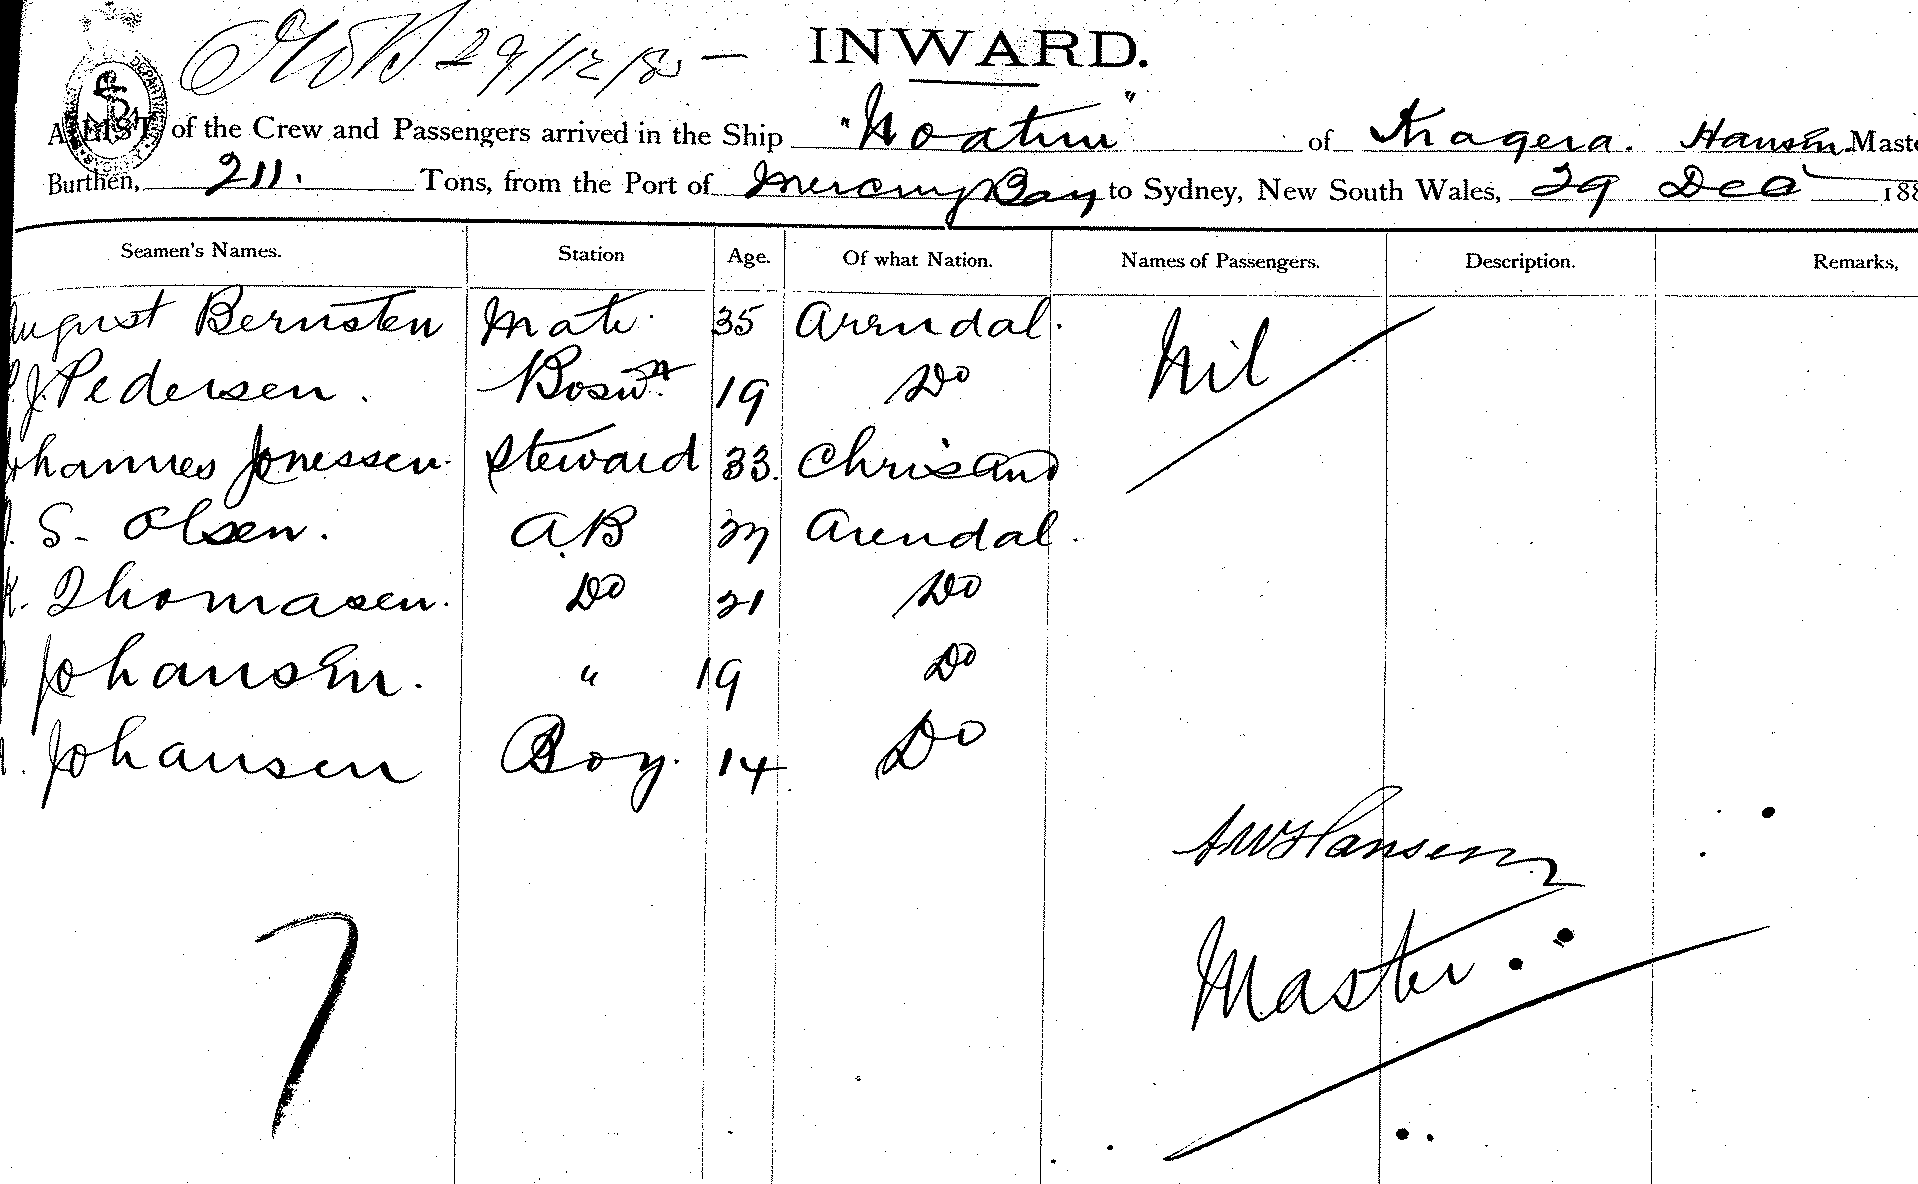 29/12/85 -
INWARD.
A LIST of the Crew and Passengers arrived in the Ship "Noatun" of Kragera. Hansen Maste
Burthen, 211. Tons, from the Port of Mercury Bay to Sydney, New South Wales, 29 Dec 188
Seamen's Names. Station Age. Of what Nation. Names of Passengers. Description. Remarks,
August Bernsten Mate 35 Arendal. Nil
J. Pedersen. Boswn 19 Do
Johannes Jonessen. Steward 33. Chrisand
S. Olsen. A.B 27 Arendal.
K. Thomasen. Do 21 Do
Johansen. " 19 Do
Johansen Boy. 14 Do
AW Hansen
Master.
7